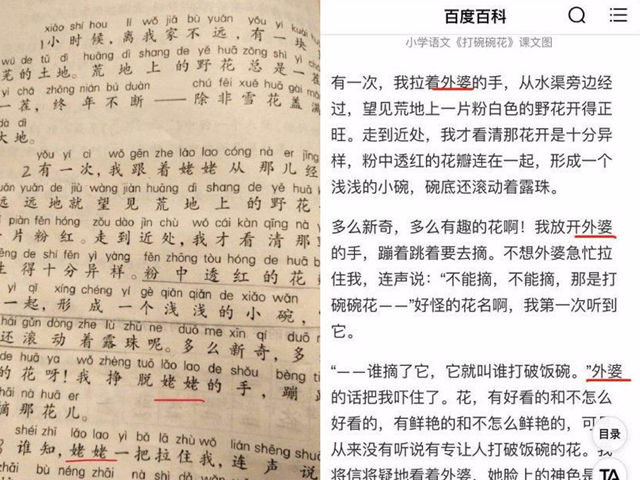 xiǎo shí hou lí wǒ jiā bù yuǎn yǒu yí kuài
1小时候，离我家不远，有一块
wú de tǔ dì huāng dì shang de yě huā zǒng shì yì chá
芜的土地。荒地上的野花总是一茬
yì chá zhōng nián bú duàn chú fēi xuě huā gài mǎn
一茬，终年不断——除非雪花盖满
dà dì
大地。
yǒu yí cì wǒ gēn zhe lǎo lao cóng nà er jīng
2有一次，我跟着姥姥从那儿经
yuǎn yuǎn de jiù wàng jiàn huāng dì shang de yě huā
远远地就望见荒地上的野花
piàn fěn hóng zǒu dào jìn chù wǒ cái kàn qīng nà
片粉红。走到近处，我才看清那
de shí fēn yì yàng fěn zhōng tòu hóng de huā
生得十分异样。粉中透红的花
yì qǐ xíng chéng yí gè qiǎn qiǎn de xiǎo wǎn
一起，形成一个浅浅的小碗，
hái gǔn dòng zhe lù zhū ne duō me xīn qí duō
还滚动着露珠呢。多么新奇，多
de huā ya wǒ zhèng tuō lǎo lao de shǒu bèng
的花呀！我挣脱姥姥的手，蹦
zhāi nà huā er
摘那花儿。
shéi zhī lǎo lao yì bǎ lā zhù wǒ lián shēng shuō
3谁知，姥姥一把拉住我，连声说
zhāi bù néng zhāi nà shì dǎ wǎn
百度百科
小学语文《打碗碗花》课文图
有一次，我拉着外婆的手，从水渠旁边经
过，望见荒地上一片粉白色的野花开得正
旺。走到近处，我才看清那花开是十分异
样，粉中透红的花瓣连在一起，形成一个
浅浅的小碗，碗底还滚动着露珠。
多么新奇，多么有趣的花啊！我放开外婆
的手，蹦着跳着要去摘。不想外婆急忙拉
住我，连声说：“不能摘，不能摘，那是打
碗碗花——”好怪的花名啊，我第一次听到
它。
“——谁摘了它，它就叫谁打破饭碗。”外婆
的话把我吓住了。花，有好看的和不怎么
好看的，有鲜艳的和不怎么鲜艳的，可
从来没有听说有专让人打破饭碗的花。我
将信将疑地看着外婆，她脸上的神色是
目录
TA